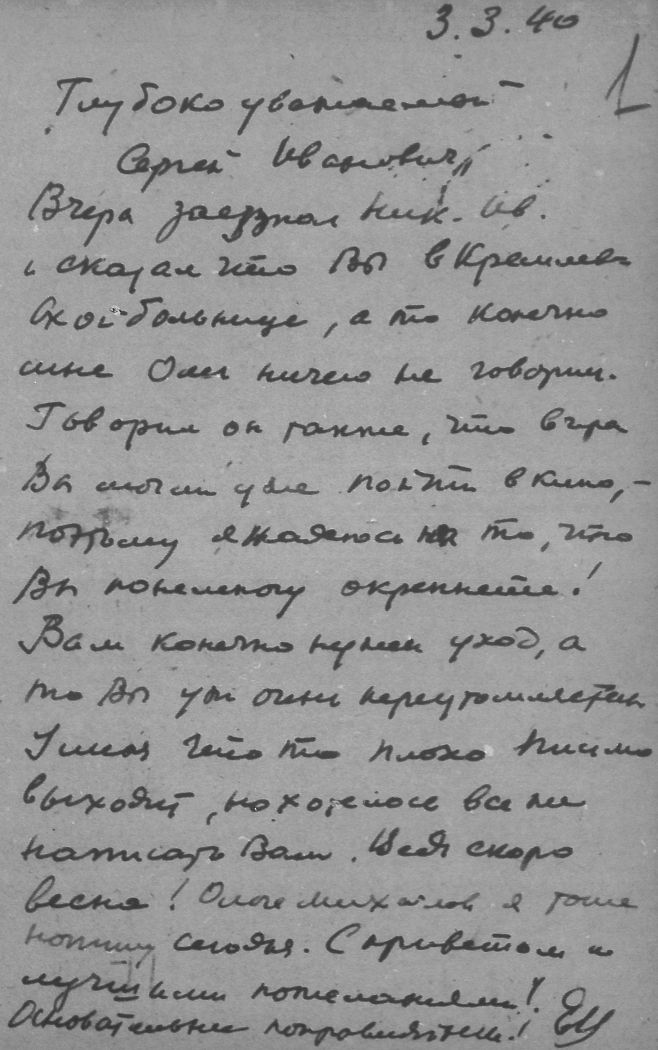 3.3.40
1
Глубокоуважаемый
Сергей Иванович,
Вчера заезжал Ник. Ив.
и сказал что Вы в Кремлев
ской больнице, а то конечно
мне Оли ничего не говорили.
Говорил он также, что вчера
Вы могли уже пойти в кино, –
поэтому я надеюсь на то, что
Вы понемногу окрепнете!
Вам конечно нужен уход, а
то Вы уж очень переутомляетесь
У меня что то плохо письмо
выходит, но хотелось все же
написать Вам. Ведь скоро
весна! Ольге Михайлов я тоже
напишу сегодня. С приветом и
лучшими пожеланиями!
Основательно поправляйтесь!